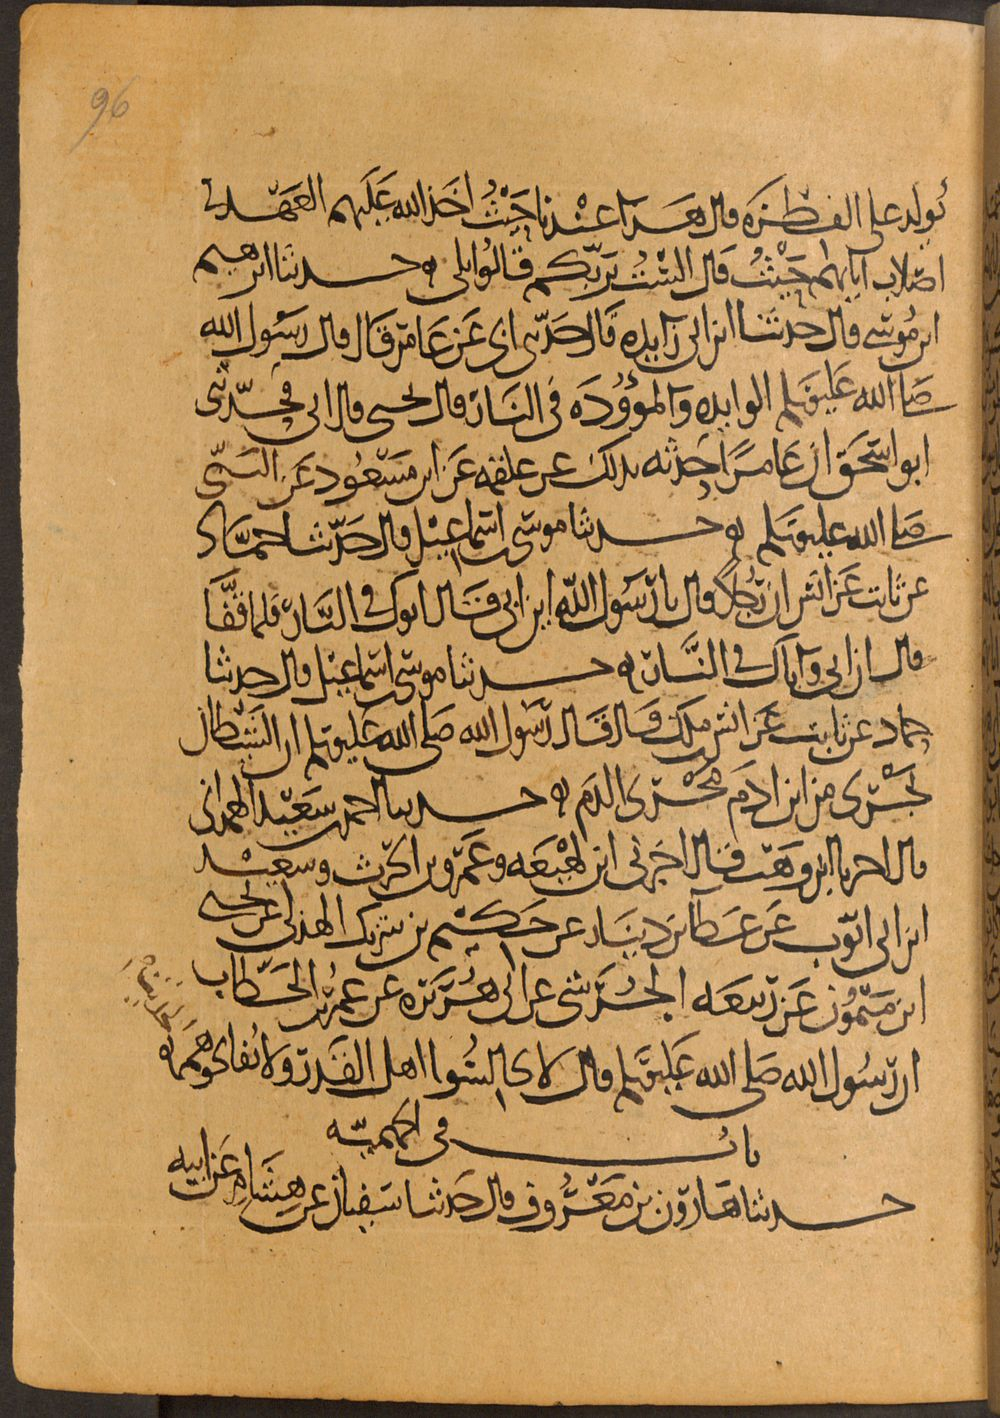 96
يولد على الفطرة قال هذا عندنا حيث اخذ الله عليهم العهد في
اصلاب ابايهم حيث قال الست بربكم قالوا بلى ه حدثنا ابرهيم
ابن موسى قال حدثنا ابن ابي زايده قال حدثني ابي عن عامر قال قال رسول الله
صلى الله عليه وسلم الوايده والموؤدة في النار قال يحيى قال ابي فحدثني
ابو اسحق ان عامرا حدثه بذلك عن علقمه عن ابن مسعود عن النبي
صلى الله عليه وسلم ه حدثنا موسى اسماعيل قال حدثنا حماد
عن ثابت عن انس ان رجلا قال يا رسول الله اين ابي قال ابوك في النار فلما قفا
قال ان ابي واباك في النار ه حدثنا موسى اسماعيل قال حدثنا
حماد عن ثابت عن انس بن ملك قال قال رسول الله صلى الله عليه وسلم ان الشيطان
يجري من ابن ادم مجرى الدم ه حدثنا احمد بن سعيد الهمداني
قال اخبرنا ابن وهب قال اخبرني ابن لهيعه وعمرو بن الحرث وسعيد
ابن ابي ايوب عن عطا بن دينار عن حكيم بن شريك الهذلي عن يحيى
ابن ميمون عن ربيعه الجرشي عن ابي هريرة عن عمر بن الخطاب
ان رسول الله صلى الله عليه وسلم قال لا تجالسوا اهل القدر ولا تفاتحوهم ه
باب في الجهميه
حدثنا هارون بن معروف قال حدثنا سفيان عن هشام عن ابيه